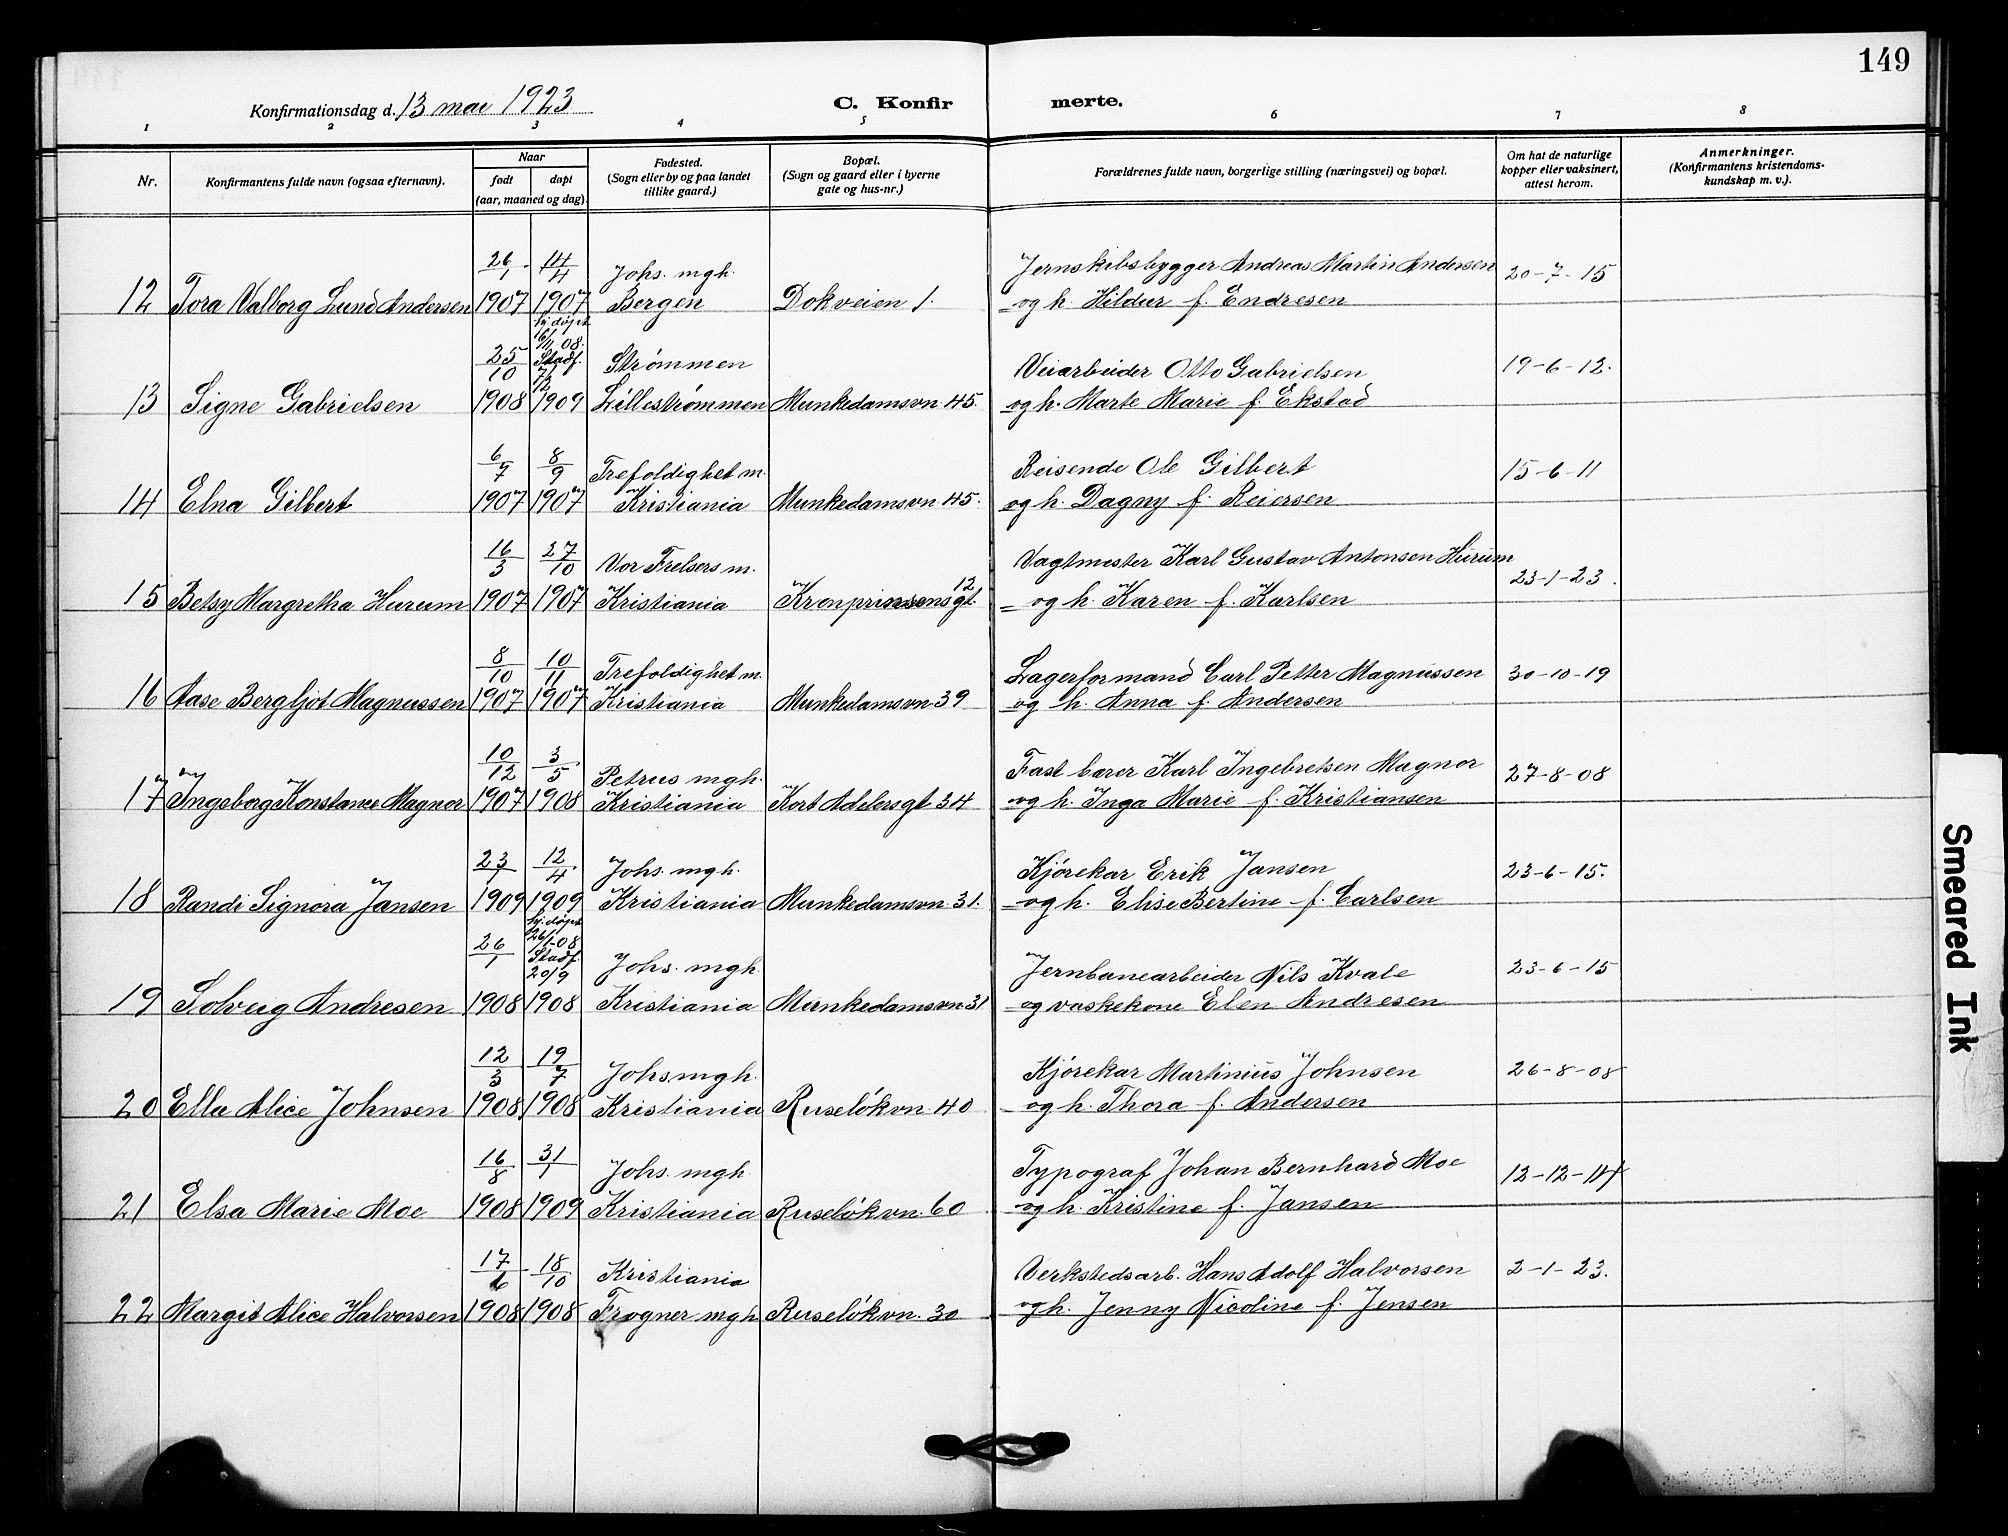 149
Konfirmationsdag d. 13 mai 1923
C. Konfir merte.
1 2 3 4 5 6 7 8
Nr.
Konfirmantens fulde navn (ogsaa efternavn).
Naar
født døpt
(aar, maaned og dag).
Fødested.
(Sogn eller by og paa landet
tillike gaard.)
Bopæl.
(Sogn og gaard eller i byerne
gate og hus-nr.)
Forældrenes fulde navn, borgerlige stilling (næringsvei) og bopæl.
Om hat de naturlige
kopper eller vaksinert,
attest herom.
Anmerkninger.
(Konfirmantens kristendoms-
kundskap m. v.).
26/1 14/4 Johs. mgh. Jernskibsbygger Andreas Martin Andersen 20-7-15
12 Tora Valborg Lund Andersen 1907 1907 Bergen Dokveien 1. og h. Hildur f. Endresen
hj.døpt
16/11 08.
25/10 Stadf. Strømmen Veiarbeider Otto Gabrielsen 19-6-12.
7/12
13 Signe Gabrielsen 1908 1909 Lillestrømmen Munkedamsvn 45. og h. Marte Marie f. Ekstad
6/7 8/9 Trefoldighet m. Reisende Ole Gilbert 15-6-11
14 Elna Gilbert 1907 1907 Kristiania Munkedamsvn 45. og h. Dagny f. Reiersen
16/3 27/10 Vor Frelsers m. Vagtmester Karl Gustav Antonsen Hurum 23-1-23.
15 Betsy Margretha Hurum 1907 1907 Kristiania Kronprinsensgt. 12 og h. Karen f. Karlsen
8/10 10/11 Trefoldighet m. Lagerformand Carl Petter Magnussen 30-10-19
16 Aase Bergljot Magnussen 1907 1907 Kristiania Munkedamsvn 39 og h. Anna f. Andersen
10/12 3/5 Petrus mgh. Fast bærer Karl Ingebretsen Magnor 27-8-08
17 Ingeborg Konstance Magnor 1907 1908 Kristiania Kort Adelersgt 34 og h. Inga Marie f. Kristiansen
23/1 12/4 Johs. mgh. Kjørekar Erik Jansen 23-6-15.
18 Randi Signora Jansen 1909 1909 Kristiania Munkedamsvn. 31. og h. Elise Bertine f. Carlsen
hj.døpt
26/1 26/1-08 Johs. mgh. Jernbanearbeider Nils Kvale 23-6-15
Stadf.
20/9
19 Solveig Andresen 1908 1908 Kristiania Munkedamsvn 31 og vaskekone Elen Andresen
12/3 19/7 Johs. mgh. Kjørekar Martinius Johnsen 26-8-08
20 Ella Alice Johnsen 1908 1908 Kristiania Ruseløkvn. 40 og h. Thora f. Andersen
16/8 31/1 Johs. mgh Typograf Johan Bernhard Moe 12-12-14
21 Elsa Marie Moe 1908 1909 Kristiania Ruseløkvn. 60 og h. Kristine f. Jansen
17/6 18/10 Kristiania Verkstedsarb. Hans Adolf Halvorsen 2-1-23.
22 Margit Alice Halvorsen 1908 1908 Frogner mgh Ruseløkvn. 30 og h. Jenny Nicoline f. Jensen
Smeared Ink